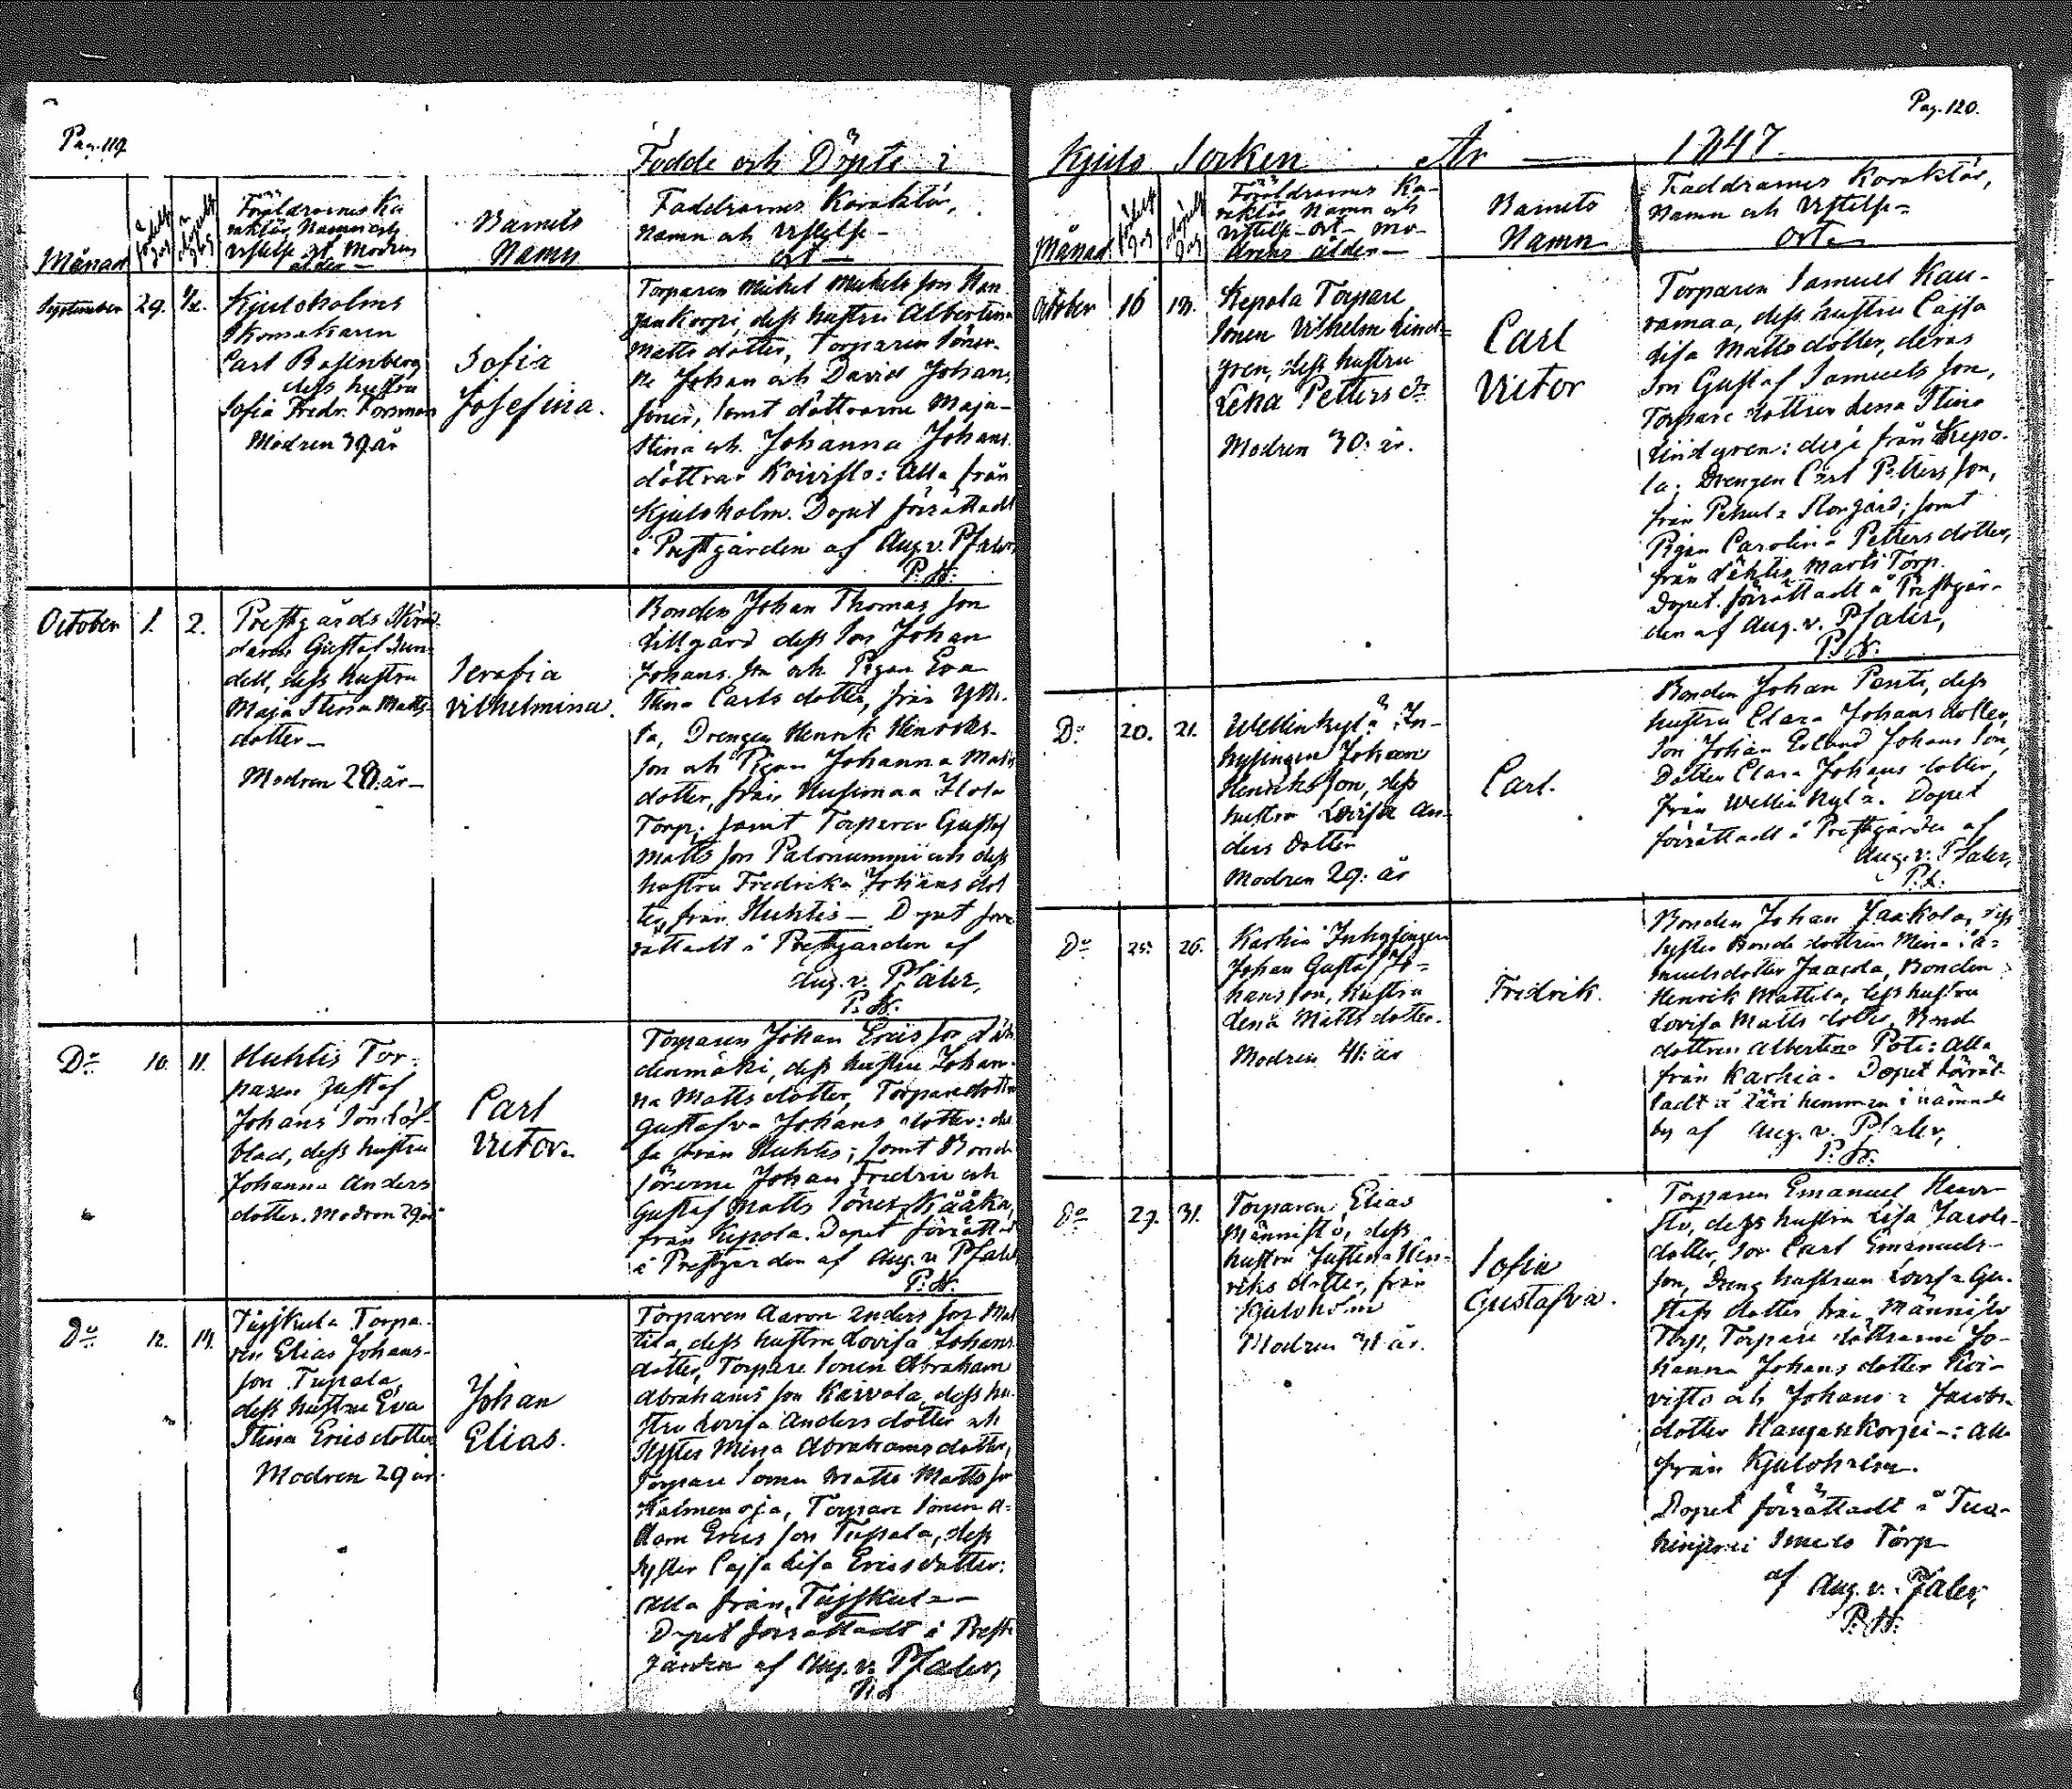 Pag. 119
Födde och Döpte i
Månad
födelse dag
döpelse dag
Föräldrarnes Ka
raktär, Namn och
Vistelse ort Modrens
ålder —
Barnets
Namn
Faddrarnes Karaktär,
Namn och Vistelse-
ort —
September 29.
Kjuloholms
Skomakaren
Carl Rosenberg
dess hustru
Sofia Fredr. Forsman
Modren 39 år
Sofia
Josefina.
Torparen Mikel Mikels son Han
gankorpi, dess hustru Albertina
Matts dotter, Torparen Söner-
ne Johan och David Johans
söner, samt döttrarne Maja
Stina och Johanna Johans
döttrar Koivisto: Alla från
Kjuloholm. Dopet förrättadt
i Prestgården af Aug. v. Pfaler,
P. A:
October 1. 2.
Prestgårds
Gustaf
dell, dess hustru
Maja Stina Matts
dotter —
Modren 28 år —
Serafia
Vilhelmina.
Bonden Johan Thomas son
Lillgård dess son Johan
Johans son och Pigan Eva
Stina Carls dotter, från
la, Drengen Henrik Henriks
son och Pigan Johanna Matts
dotter, från
Torp; samt Torparen Gustaf
Matts son Palonummi och dess
hustru Fredrika Johans dot
ter, från Huhtis — Dopet för
rättadt i Prestgården af
Aug. v. Pfaler,
P. A:
Do 10. 11.
Huhtis Tor-
paren Gustaf
Johans son Löf-
blad, dess hustru
Johanna Anders
dotter. Modren 29 år
Carl
Victor.
Torparen Johan Erics son
denmäki, dess hustru Johan-
na Matts dotter, Torpare dotter
Gustafva Johans dotter: des
sa från Huhtis; samt Bonde
sönerne Johan Fredric och
Gustaf Matts söner Kååka,
från Kepola. Dopet förrättadt
i Prestgården af Aug. v. Pfaler
P. A:
Do 12. 14.
Tujskula Torpa-
ren Elias Johans-
son Tupala,
dess hustru Eva
Stina Erics dotter
Modren 29 år.
Johan
Elias.
Torparen Aaron Anders son Mat
tila, dess hustru Lovisa Johans
dotter, Torpare sonen Abraham
Abrahams son Karvola, dess hu-
stru Lovisa Anders dotter och
syster Mina Abrahams dotter,
Torpare sonen Matts Matts son
Halmenoja, Torpare sonen A-
dam Erics son Tupala, dess
syster Cajsa Lisa Erics dotter:
alla från Tujskula —
Dopet förrättadt i Prest
gården af Aug. v. Pfaler,
P. A.
Pag. 120.
Kjulo Socken År — 1847.
Månad
födelse dag
döpelse dag
Föräldrarnes Ka-
raktär Namn och
Vistelse-ort — Mo-
drens ålder —
Barnets
Namn
Faddrarnes Karaktär,
Namn och Vistelse-
ort
October 16
Kepola Torpare
Sonen Vilhelm Lind-
gren, dess hustru
Lena Petters dr
Modren 30: år.
Carl
Victor
Torparen Samuel Kau-
ramaa, dess hustru Cajsa
Lisa Matts dotter, deras
Son Gustaf Samuels son,
Torpare dottren Lena Stina
Lindgren: desse från Kepo-
la. Drengen Carl Petters son,
från Pehula Storgård; samt
Pigan Carolina Petters dotter,
från Lähtis Marti Torp.
Dopet förrättadt å Prestgår-
den af Aug. v. Pfaler,
P. A:
Do 20. 21.
Wellinkylä In-
hysingen Johan
Henriks son, dess
hustru Lovisa An-
ders dotter
Modren 29: år
Carl.
Bonden Johan Pentti, dess
hustru Clara Johans dotter,
Son Johan Erland Johans son,
Dotter Clara Johans dotter,
från Wellinkylä. Dopet
förrättadt å Prestgården af
Aug. v. Pfaler,
P. A:
Do 25. 26.
Karhia Inhysingen
Johan Gustaf Jo-
hans son, Hustru
Lena Matts dotter.
Modren 41: år
Fredrik.
Bonden Johan Jaakola, dess
syster Bonde dottren Mina Sa-
muelsdotter Jaacola, Bonden
Henrik Mattila, dess hustru
Lovisa Matts dotter, Bond
dottren Albertina Poti: Alla
från Karhia. Dopet förrät-
tadt å Säri hemman i nämnde
by af Aug. v. Pfaler,
P. A:
Do 29. 31.
Torparen Elias
Männistö, dess
hustru Justina Hen-
riks dotter, från
Kjuloholm
Modren 31 år.
Sofia
Gustafva.
Torparen Emanuel
sto, dess hustru Lisa Jacobs-
dotter, Son Carl Emanuels-
son, Dreng hustrun Lovisa Gu-
stafs dotter från Männistö
Torp, Torpare döttrarne Jo-
hanna Johans dotter Koi-
visto och Johanna Jacobs-
dotter Hangankorpi —: alla
från Kjuloholm.
Dopet förrättadt å
Torp
af Aug. v. Pfaler,
P. A: